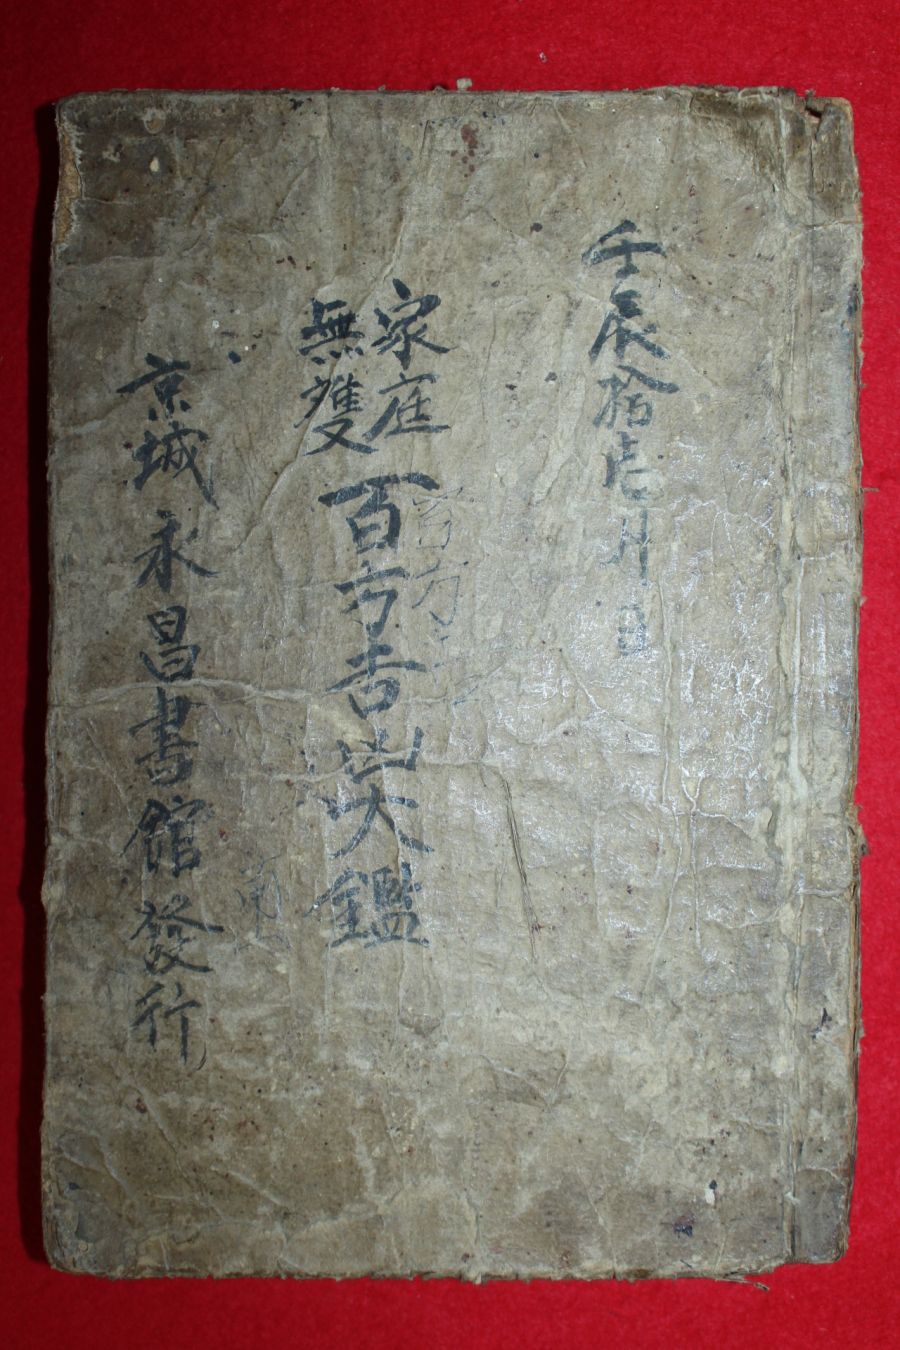 壬辰拾壱月 日
家庭
無雙
百方吉凶大鑑
京城永昌書館發行